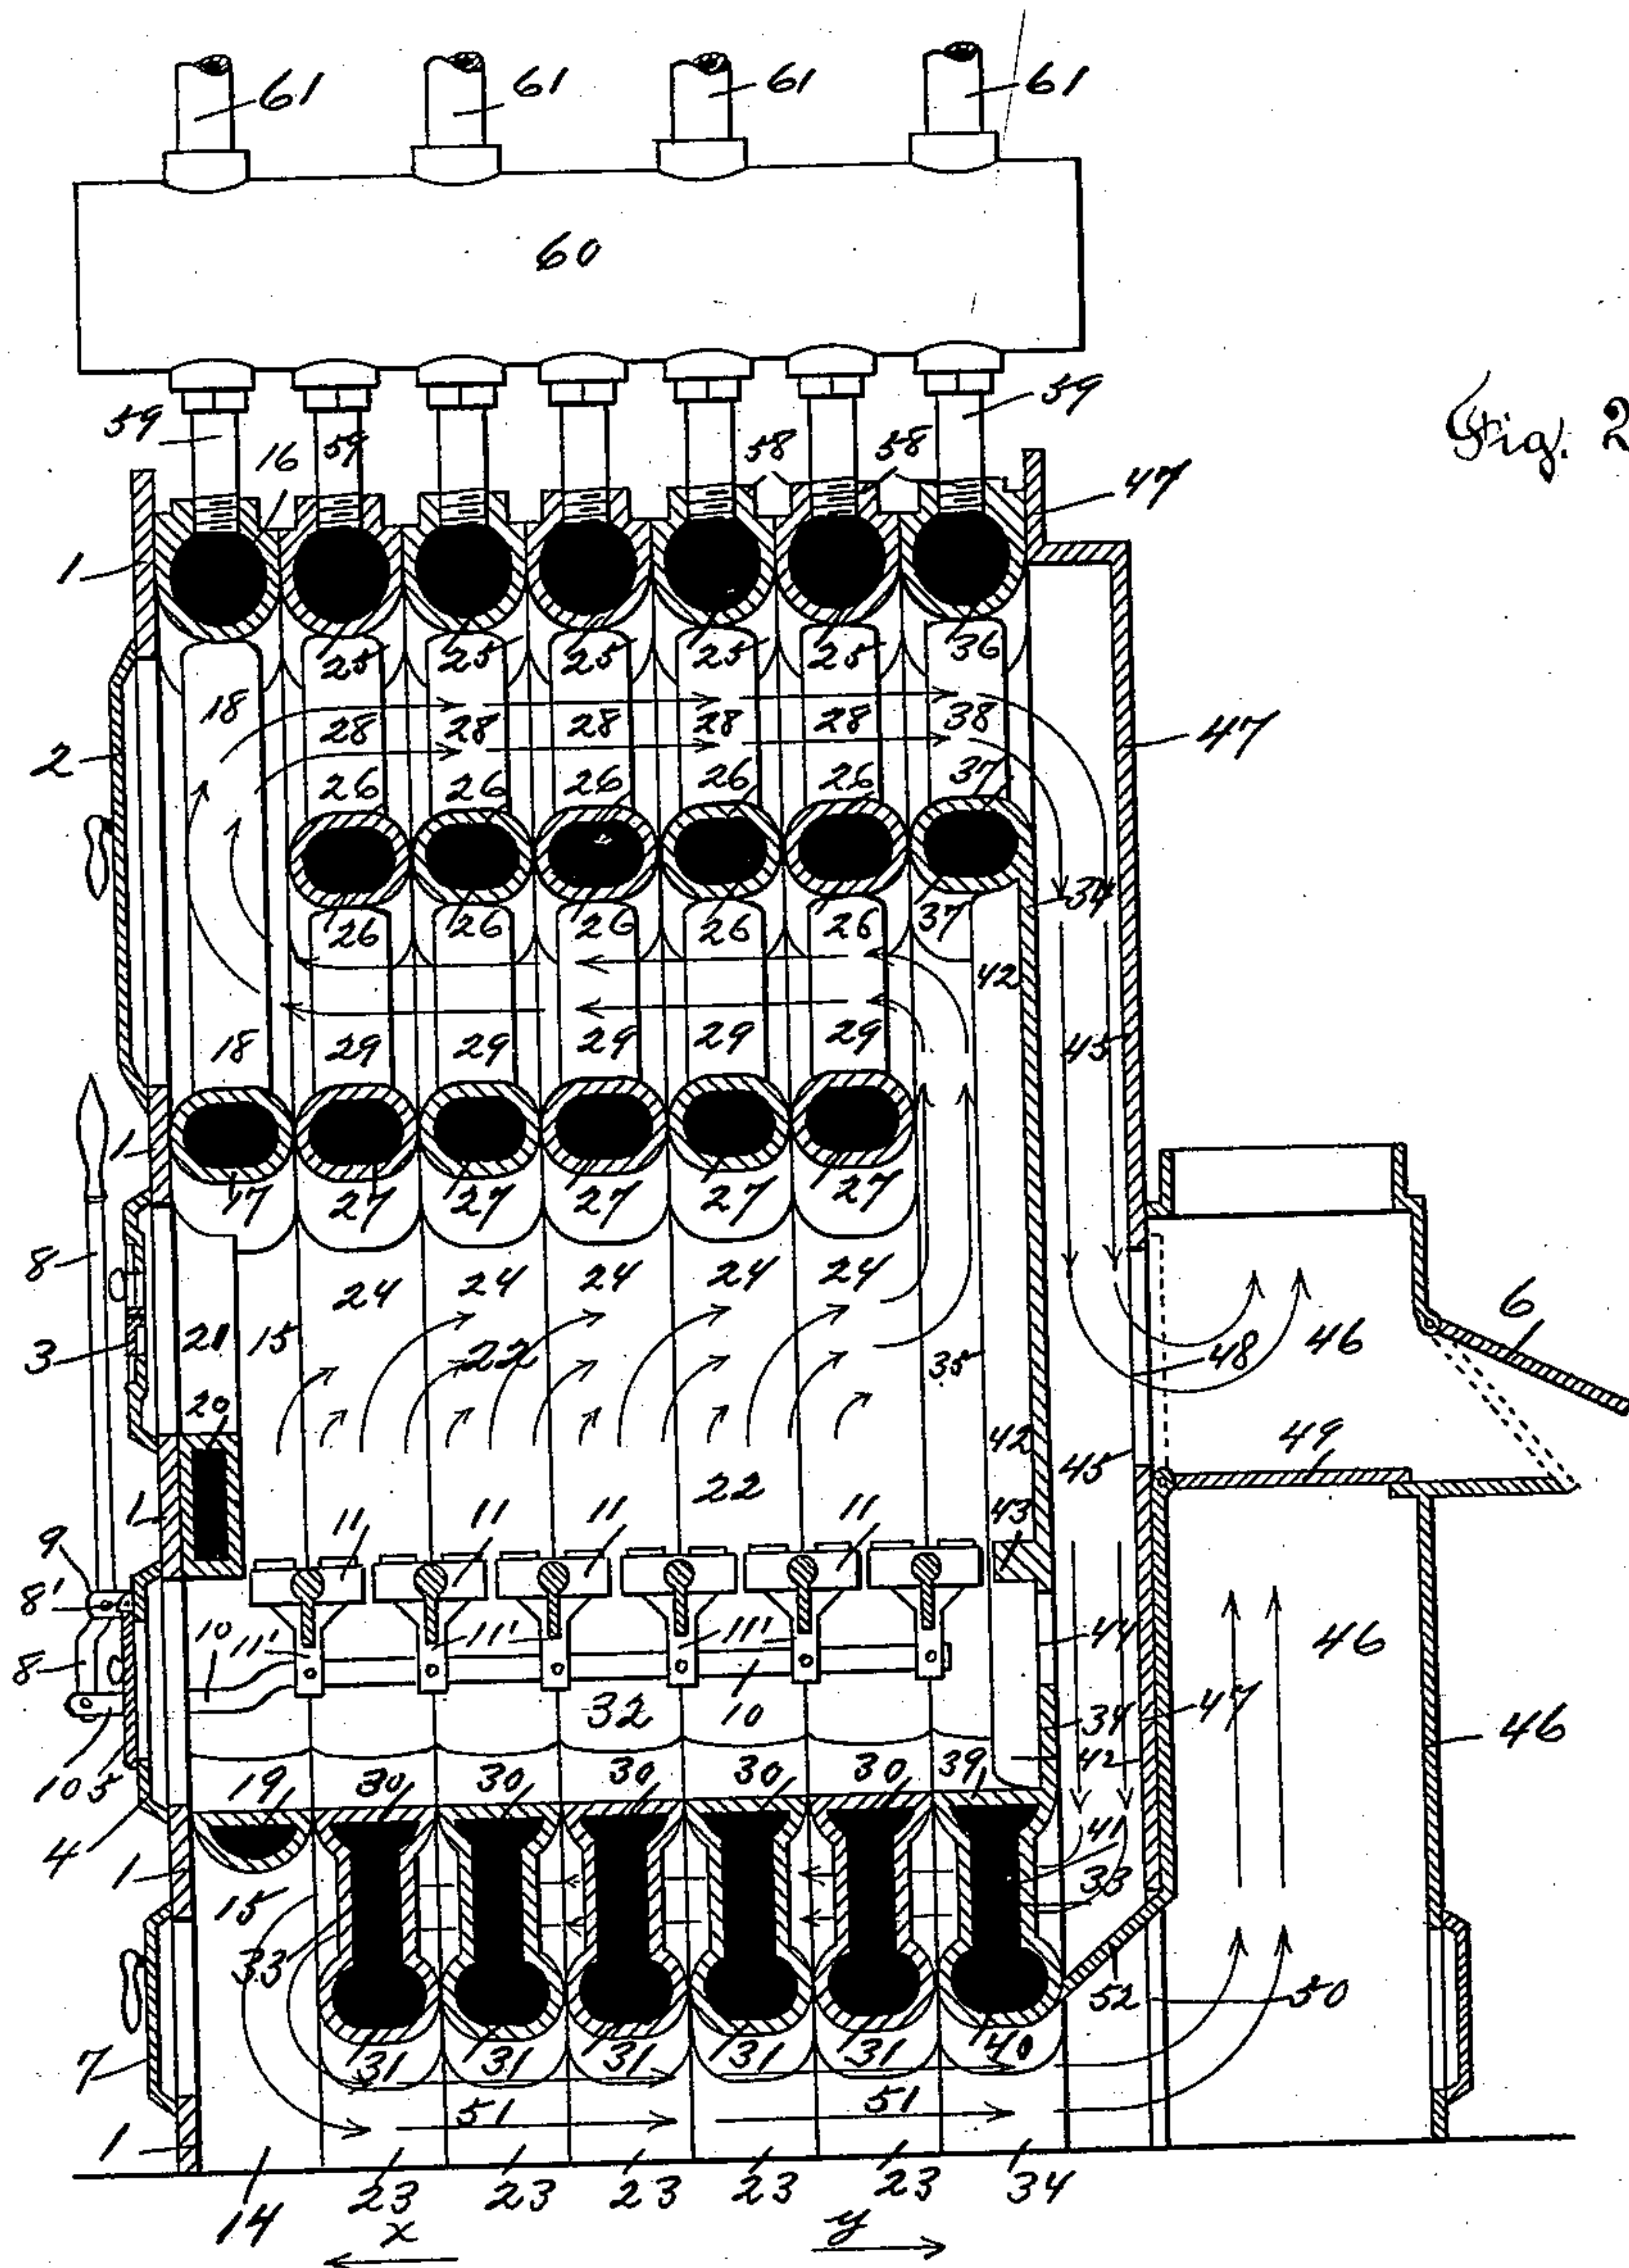 61 61 61 61
60
59 59
Fig. 2
16 59 58 58
47
1
25 25 25 25 25 36
18
28 28 28 28 28 38
2 47
26 26 26 26 26 37
34
26 26 26 26 26 37
42
18 29 29 29 29 29 45
1
17 27 27 27 27 27
8
24 24 24 24 24
6
21 15 22 35 48 46
3
20
42 45 49
22
1 11 11 11 11 43
9
8'
10 11' 11' 11' 44
46
8
32 10 34 47 46
10 5 19 30 30 30 30 30 39 42
4
41
1
15 33
33
52 50
7 31 31 31 31 31 40
51 51
1
14 23 23 23 23 23 34
x y